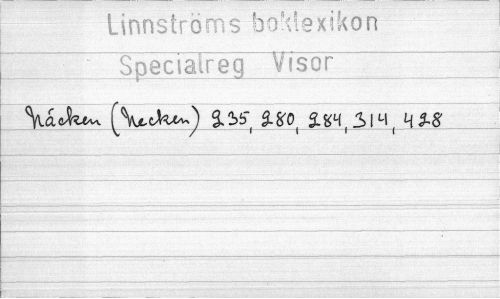 Linnströms boklexikon
Specialreg Visor
Näcken (Necken) 235, 280, 284, 314, 428